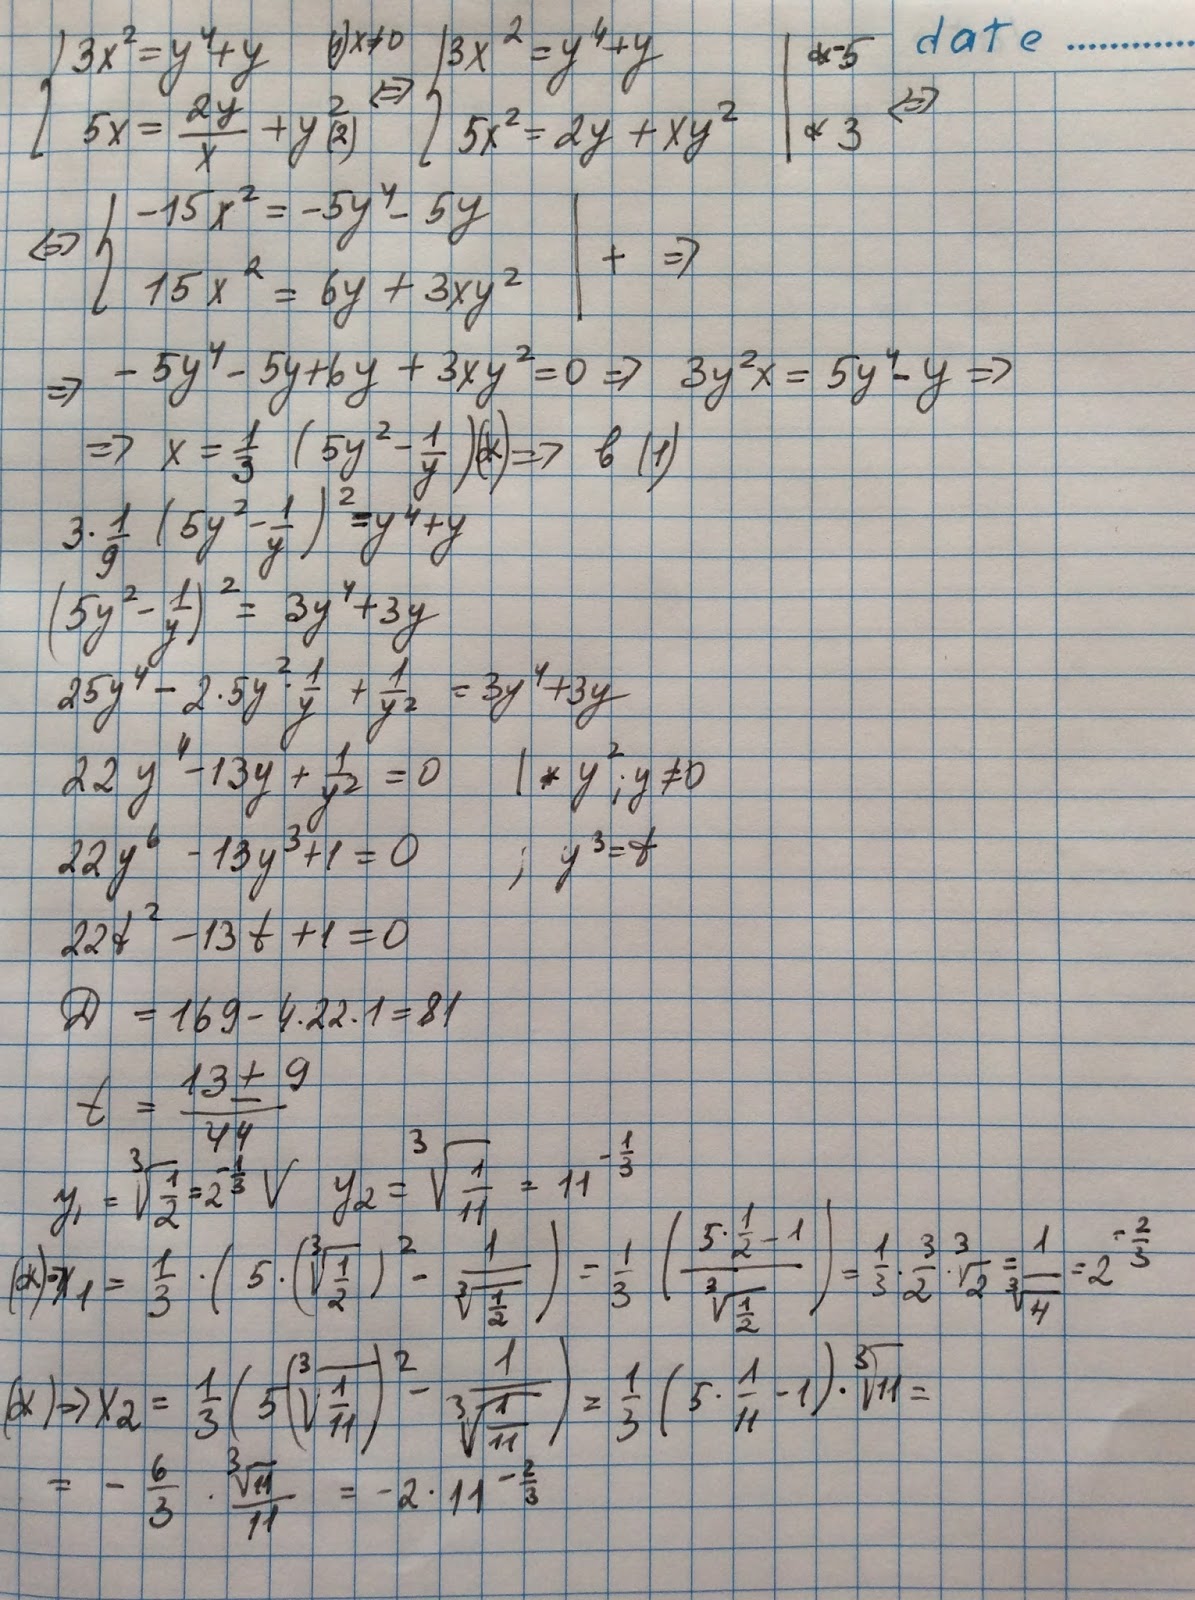 date ............
{ 3x² = y⁴+y (1) x≠0 ⇔ { 3x² = y⁴+y | *-5
{ 5x = 2y/x + y² (2) { 5x² = 2y + xy² | * 3 ⇔
⇔ { -15x² = -5y⁴ - 5y
{ 15x² = 6y + 3xy² | + ⇒
⇒ -5y⁴ - 5y + 6y + 3xy² = 0 ⇒ 3y²x = 5y⁴ - y ⇒
⇒ x = 1/3 (5y² - 1/y) (*) ⇒ в (1)
3·1/9 (5y² - 1/y)² = y⁴+y
(5y² - 1/y)² = 3y⁴+3y
25y⁴ - 2·5y²·1/y + 1/y² = 3y⁴+3y
22y⁴ - 13y + 1/y² = 0 | * y²; y≠0
22y⁶ - 13y³ + 1 = 0 ; y³ = t
22t² - 13t + 1 = 0
D = 169 - 4.22.1 = 81
t = (13 ± 9)/44
y₁ = ∛(1/2) = 2^(-1/3) √ y₂ = ∛(1/11) = 11^(-1/3)
(*) ⇒ x₁ = 1/3 · (5·(∛(1/2))² - 1/∛(1/2)) = 1/3 ((5·1/2 - 1)/∛(1/2)) = 1/3 · 3/2 · ∛2 = 1/∛4 = 2^(-2/3)
(*) ⇒ x₂ = 1/3 (5(∛(1/11))² - 1/∛(1/11)) = 1/3 (5·1/11 - 1)·∛11 =
= - 6/3 · ∛11/11 = -2·11^(-2/3)